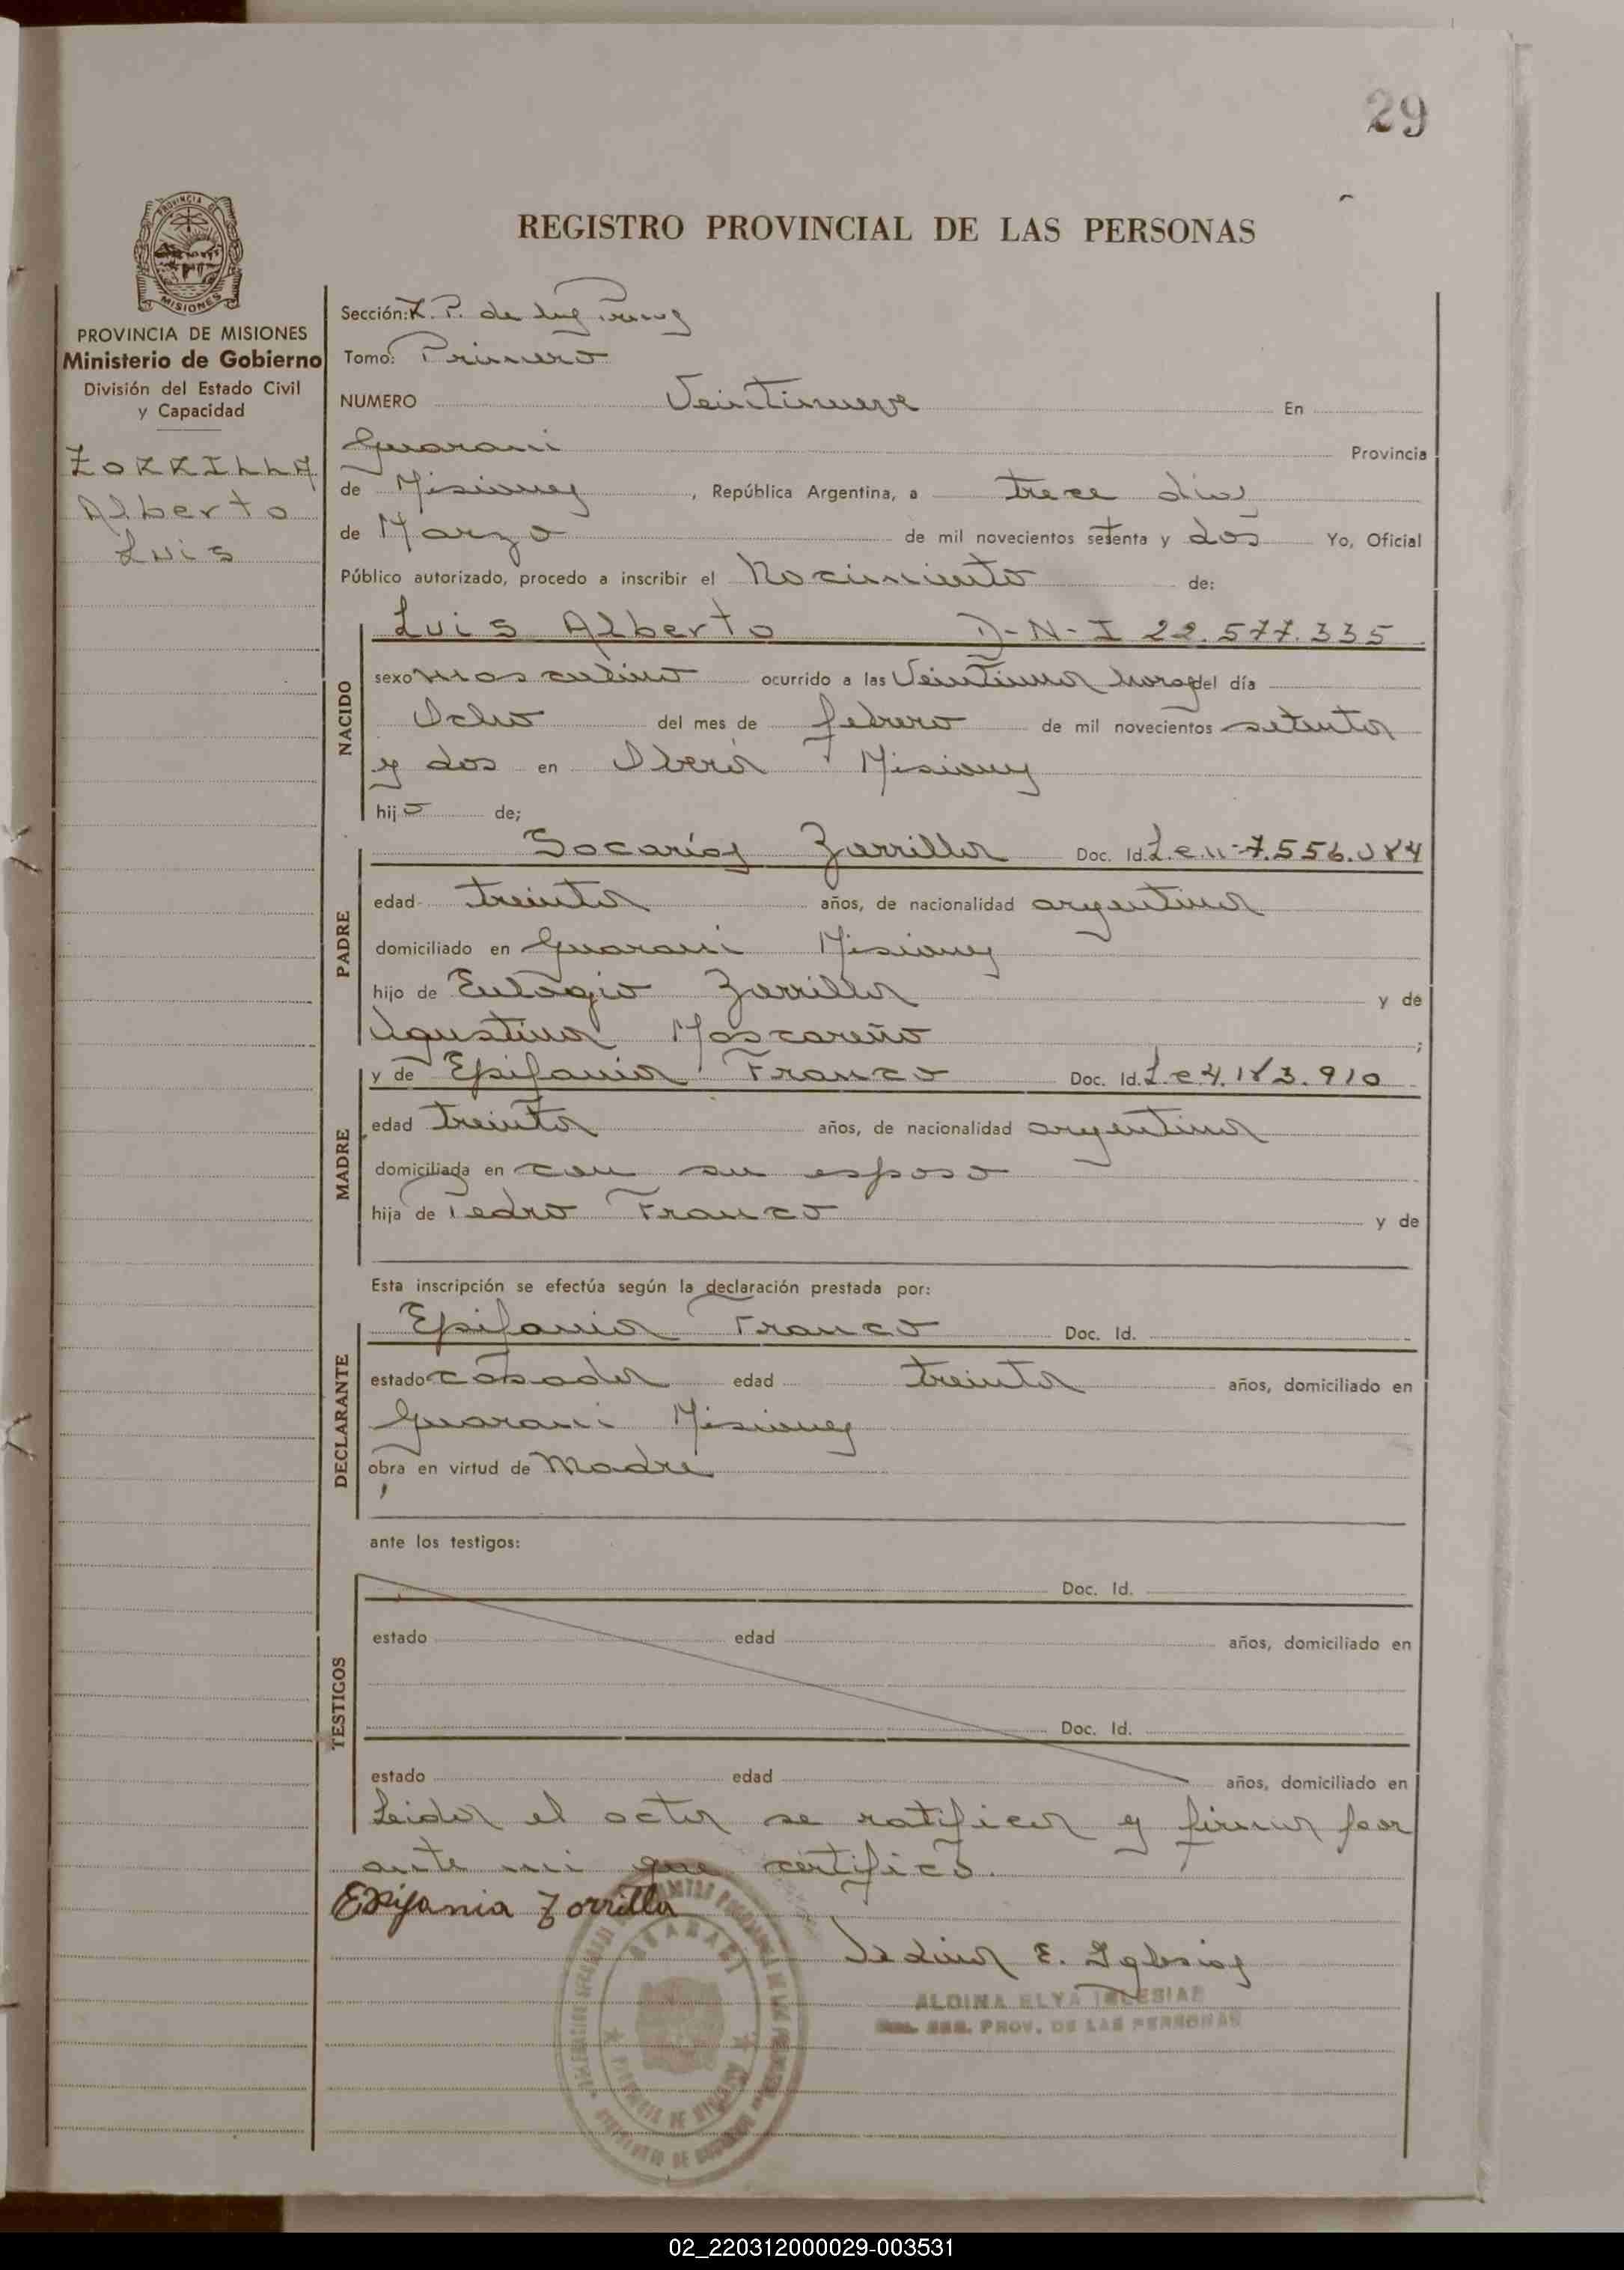 29
REGISTRO PROVINCIAL DE LAS PERSONAS
PROVINCIA DE MISIONES
Ministerio de Gobierno
División del Estado Civil
y Capacidad
ZORRILLA
Alberto
Luis
Sección: R. P. de las
Tomo: Primero
NUMERO Veintinueve En
Guarani Provincia
de Misiones, República Argentina, a trece dias
de Marzo de mil novecientos setenta y dos Yo, Oficial
Público autorizado, procedo a inscribir el Nacimiento de:
NACIDO
Luis Alberto D-N-I 22.577.335
sexo masculino ocurrido a las Veintiuna horas del día
Ocho del mes de febrero de mil novecientos setenta
y dos en Oberá Misiones
hijo de;
PADRE
Socarías Zorrilla Doc. Id. L.e. 7.556.084
edad treinta años, de nacionalidad argentina
domiciliado en Guarani Misiones
hijo de Eulogio Zorrilla y de
Agustina Mascareño ;
MADRE
y de Epifania Franco Doc. Id. L.e 4.183.910
edad treinta años, de nacionalidad argentina
domiciliada en con su esposo
hija de Pedro Franco y de
Esta inscripción se efectúa según la declaración prestada por:
DECLARANTE
Epifania Franco Doc. Id.
estado casada edad treinta años, domiciliado en
Guarani Misiones
obra en virtud de Madre
ante los testigos:
TESTIGOS
Doc. Id.
estado edad años, domiciliado en
Doc. Id.
estado edad años, domiciliado en
Leida el acta se ratifica y firma por
ante mi que certifico.
Epifania Zorrilla
E. Iglesias
ALDINA ELYA IGLESIAS
REG. PROV. DE LAS PERSONAS
02_220312000029-003531